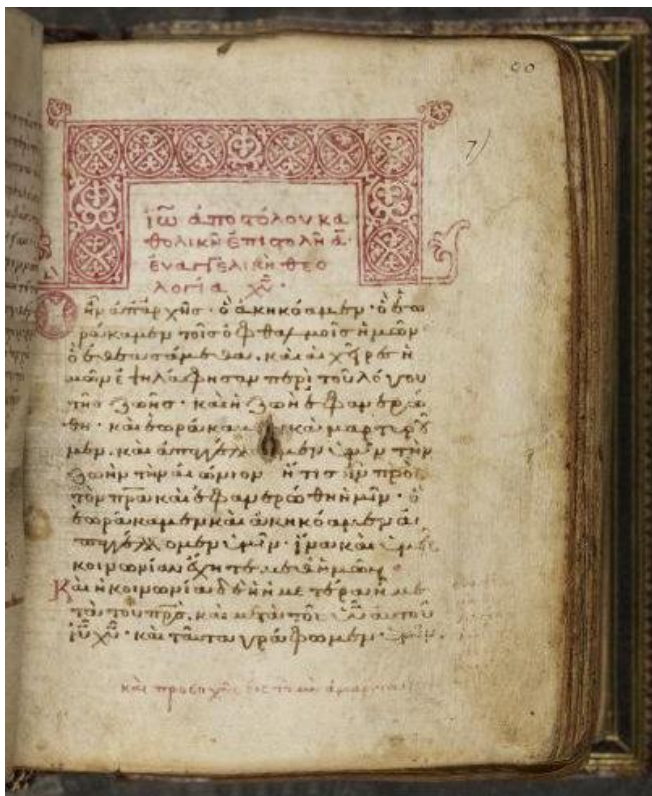 ἰῶ ἀποτόλου κα
θολικὴ ἐπιστολὴ ά·
ἐυαγγελικὴ θεο
λογία χῦ·
Ὃ ἦν ἀπαρχῆς· ὃ ἀκηκόαμεν· ὃ ἑω
ράκαμεν τοῖς ὀφθαλμοῖς ἡμῶν·
ὃ ἐθεασάμεθα, καὶ αἱ χεῖρες ἡ
μῶν ἐψηλάφησαν περὶ τοῦ λόγου
τῆς ζωῆς· καὶ ἡ ζωὴ ἐφανερώ
θη· καὶ ἑωράκαμεν καὶ μαρτυροῦ
μεν, καὶ ἀπαγγέλλομεν ὑμῖν τὴν
ζωὴν τὴν αἰώνιον ἥτις ἦν πρὸς
τὸν πρα καὶ ἐφανερώθη ἡμῖν· ὃ
ἑωράκαμεν καὶ ἀκηκόαμεν ἀ
παγγέλλομεν ὑμῖν· ἵνα καὶ ὑμεῖς
κοινωνίαν ἔχητε μεθ ἡμῶν·
Καὶ ἡ κοινωνία δὲ ἡ ἡμετέρα ἦ με
τὰ τοῦ πρς, καὶ μετὰ τοῦ ὑῦ αὐτοῦ
ἰῦ χῦ· καὶ ταῦτα γράφωμεν ὑμῖν·